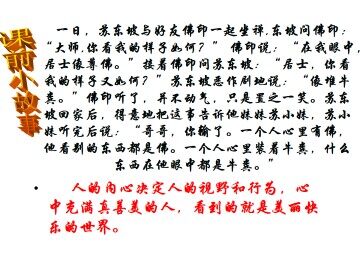 课前小故事
一日，苏东坡与好友佛印一起坐禅.东坡问佛印：
“大师,你看我的样子如何？” 佛印说：“在我眼中，
居士像尊佛。”接着佛印问苏东坡：“居士，你看
我的样子又如何？”苏东坡恶作剧地说：“像堆牛
粪。”佛印听了，并不动气，只是置之一笑。苏东
坡回家后，得意地把这事告诉他妹妹苏小妹，苏小
妹听完后说：“哥哥，你输了。一个人心里有佛，
他看别的东西都是佛。一个人心里装着牛粪，什么
东西在他眼中都是牛粪。”
• 人的内心决定人的视野和行为，心
中充满真善美的人，看到的就是美丽快
乐的世界。